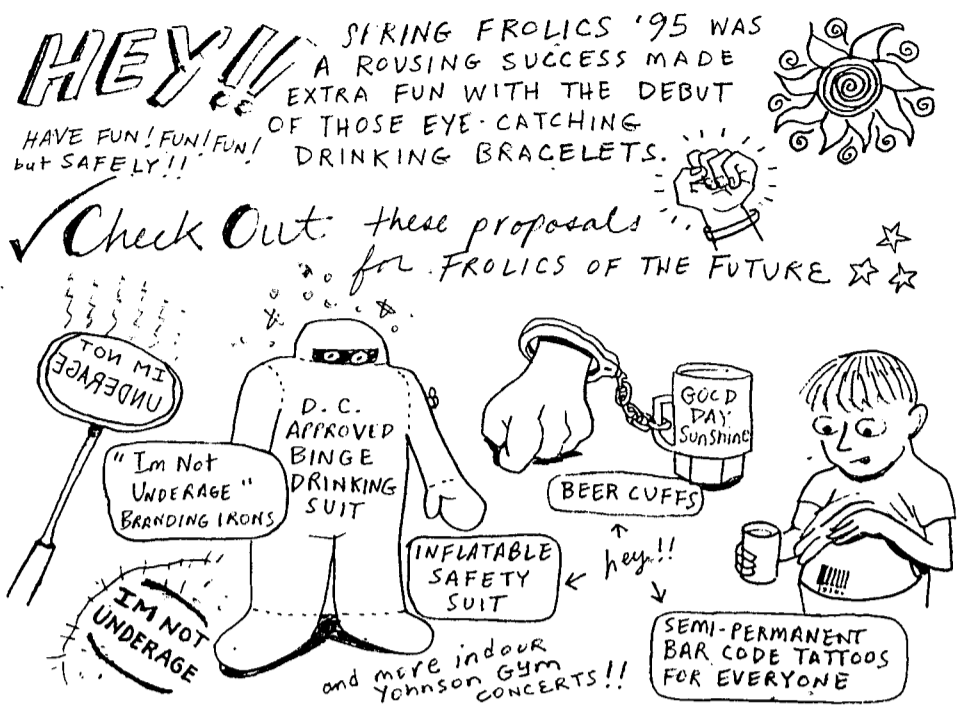 HEY!!
HAVE FUN! FUN! FUN!
but SAFELY!!
SPRING FROLICS '95 WAS
A ROUSING SUCCESS MADE
EXTRA FUN WITH THE DEBUT
OF THOSE EYE-CATCHING
DRINKING BRACELETS.
✓Check Out these proposals
for FROLICS OF THE FUTURE
IM NOT
UNDERAGE
"Im Not
UNDERAGE"
BRANDING IRONS
IM NOT
UNDERAGE
D.C.
APPROVED
BINGE
DRINKING
SUIT
INFLATABLE
SAFETY
SUIT
GOOD
DAY
Sunshine
BEER CUFFS
hey!!
SEMI-PERMANENT
BAR CODE TATTOOS
FOR EVERYONE
and more indoor
Johnson Gym
CONCERTS!!